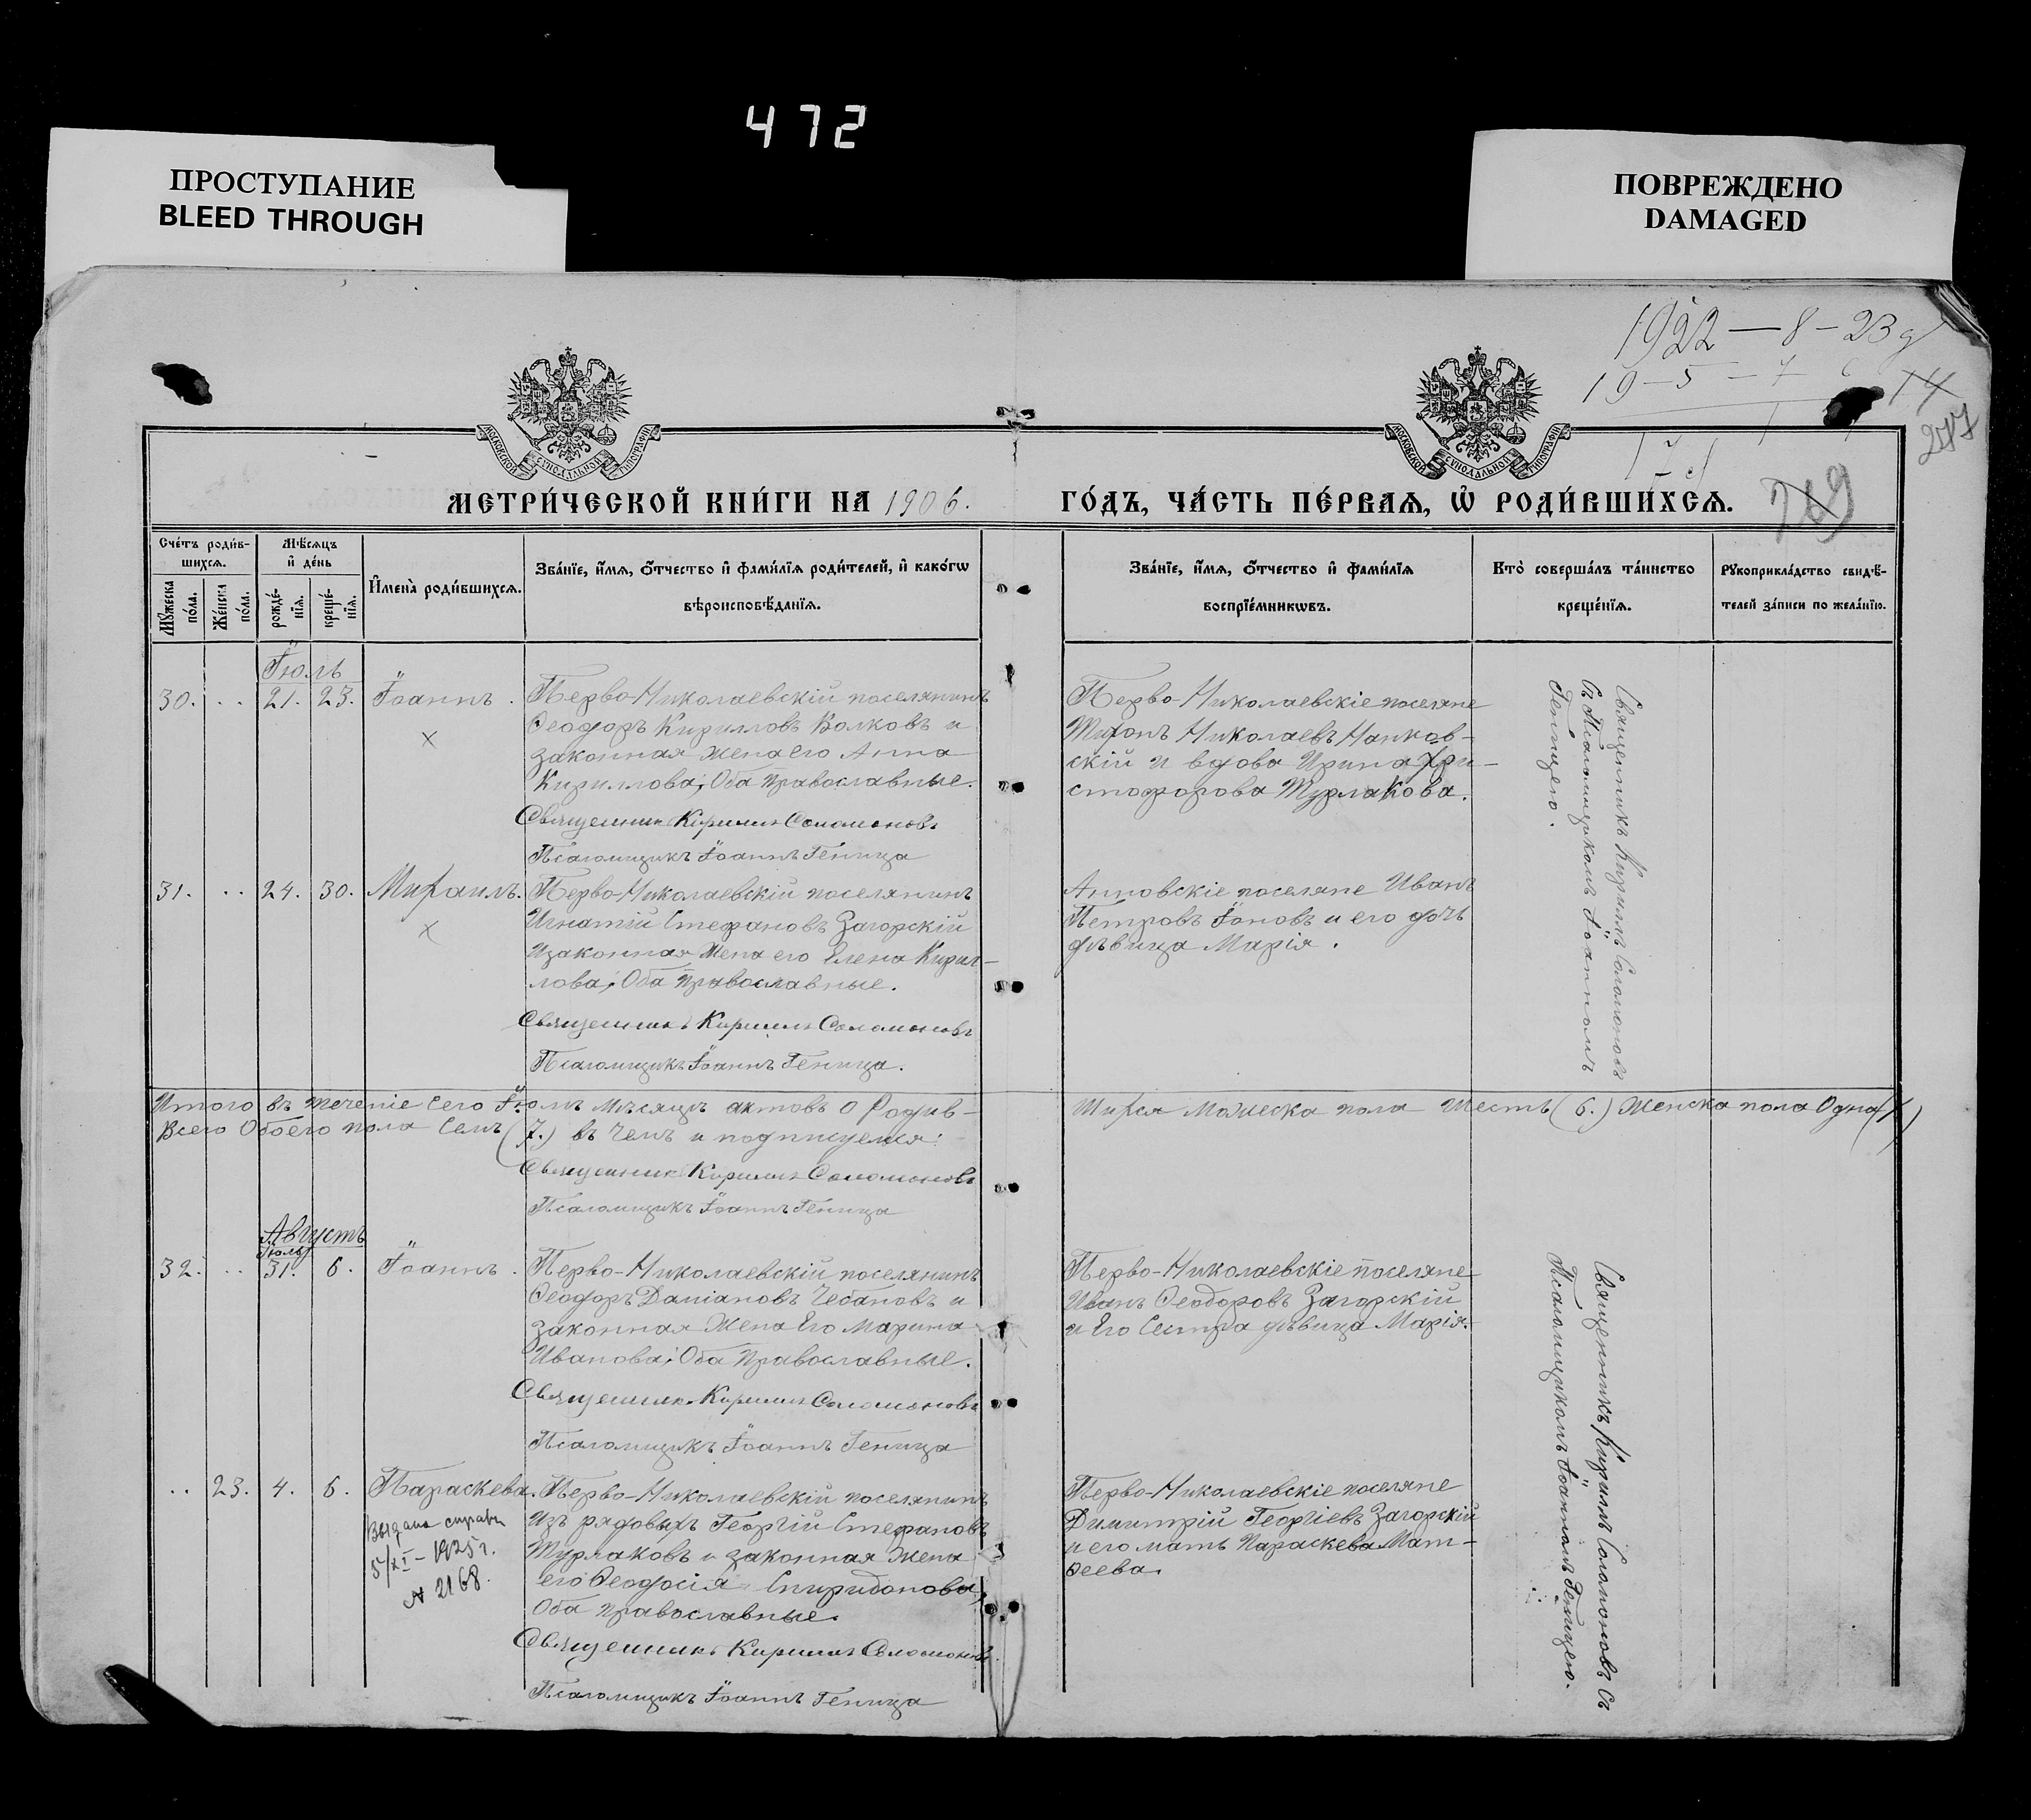 472
ПРОСТУПАНИЕ
BLEED THROUGH
ПОВРЕЖДЕНО
DAMAGED
1922 — 8 — 23
19 — 5 — 7 6
14
МОСКОВСКОЙ СѴНОДАЛЬНОЙ ТИПОГРАФІИ
МОСКОВСКОЙ СѴНОДАЛЬНОЙ ТИПОГРАФІИ
МЕТРИ́ЧЕСКОЙ КНИ́ГИ НА 1906. ГО́ДЪ, ЧА́СТЬ ПЕ́РВАѦ, Ѡ҆ РОДИ́ВШИХСѦ.
Сче́тъ роди́в-
шихсѧ.
Мꙋ́жеска по́ла.
Же́нска по́ла.
Мѣ́сѧцъ
и҆ де́нь
рожде́-
нїѧ.
креще́-
нїѧ.
И҆мена̀ роди́вшихсѧ.
Зва́нїе, и҆́мѧ, ѻ҆́тчество и҆ фами́лїѧ роди́телей, и҆ како́гѡ
вѣроисповѣ́данїѧ.
Зва́нїе, и҆́мѧ, ѻ҆́тчество и҆ фами́лїѧ
воспрїе́мникѡвъ.
Кто̀ соверша́лъ та́инство
креще́нїѧ.
Рꙋкоприкла́дство свидѣ́-
телей за́писи по жела́нїю.
Іюль
30. .. 21. 23. Іоаннъ.
Перво-Николаевскій поселянинъ
Ѳеодоръ Кирилловъ Волковъ и
законная жена его Анна
Кириллова; Оба православные.
Священникъ Кириллъ Соломоновъ
Псаломщикъ Іоаннъ Геница
Перво-Николаевскіе поселяне
Тихонъ Николаевъ Нанков-
скій и вдова Ирина Хри-
стофорова Турлакова.
Священникъ Кириллъ Соломоновъ
съ Псаломщикомъ Іоанномъ
Геницею.
31. .. 24. 30. Михаилъ.
Перво-Николаевскій поселянинъ
Игнатій Стефановъ Загорскій
и законная жена его Елена Кирил-
лова; Оба православные.
Священникъ Кириллъ Соломоновъ
Псаломщикъ Іоаннъ Геница.
Анновскіе поселяне Иванъ
Петровъ Іоновъ и его дочь
дѣвица Марія.
Итого въ теченіе сего Іюлъ мѣсяцъ актовъ о Родив-шихся Мужеска пола Шесть (6.) Женска пола Одна (1)
Всего Обоего пола Семь (7.) въ чемъ и подписуемся:
Священникъ Кириллъ Соломоновъ
Псаломщикъ Іоаннъ Геница
Августъ
Іюль
32. .. 31. 6. Іоаннъ.
Перво-Николаевскій поселянинъ
Ѳеодоръ Даміановъ Чебановъ и
законная жена Его Марина
Иванова; Оба православные.
Священникъ Кириллъ Соломоновъ
Псаломщикъ Іоаннъ Геница
Перво-Николаевскіе поселяне
Иванъ Ѳеодоровъ Загорскій
и Его Сестра дѣвица Марія.
Священникъ Кириллъ Соломоновъ съ
Псаломщикомъ Іоанномъ Геницею.
.. 23. 4. 6. Параскева.
Выдана справка
5/XI – 1925 г.
№ 2168.
Перво-Николаевскій поселянинъ
Изъ рядовыхъ Георгій Стефановъ
Турлаковъ и законная жена
его Ѳеодосія Спиридонова,
Оба православные.
Священникъ Кириллъ Соломоновъ
Псаломщикъ Іоаннъ Геница
Перво-Николаевскіе поселяне
Димитрій Георгіевъ Загорскій
и его мать Параскева Мат-
ѳеева.